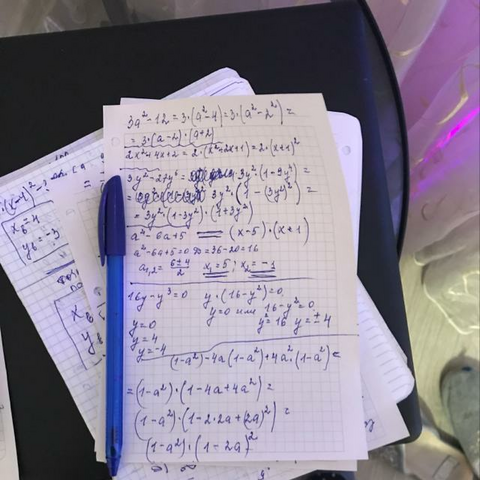 3a²-12 = 3·(a²-4) = 3·(a²-2²) =
= 3·(a-2)·(a+2)
2x²+4x+2 = 2·(x²+2x+1) = 2·(x+1)²
3y²-27y⁶ = 3y²·(1-9y⁴) =
= 3y²·(1-(3y²)²) =
= 3y²·(1-3y²)·(1+3y²)
a²-6a+5 = (x-5)·(x+1)
a²-6a+5=0 D=36-20=16
a₁,₂ = 6±4/2 x₁=5; x₂=-1
16y-y³=0 y·(16-y²)=0
y=0 или 16-y²=0
y=0 y²=16 y=±4
y=4
y=-4
(1-a²)-4a(1-a²)+4a²·(1-a²) =
= (1-a²)·(1-4a+4a²) =
(1-a²)·(1-2·2a+(2a)²) =
(1-a²)·(1-2a)²